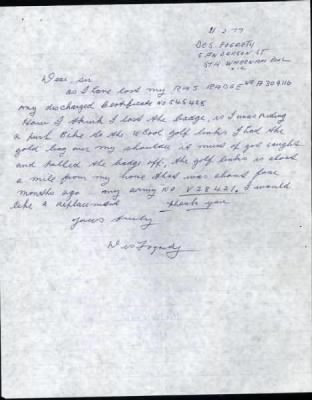 21.2.77
DES. FOGARTY
5 ANDERSON ST
STH W'BOOL
Dear Sir
as I have lost my RAS BADGE No A309116
my discharged Certificate No 545428
How I think I lost the badge, is I was riding
a push Bike to the W'Bool golf links I had the
golf bag over my shoulder it must of got caught
and pulled the badge off, the golf links is about
a mile from my home that was about four
months ago my army No V28421. I would
like a replacement thank you
Yours truly
Des Fogarty